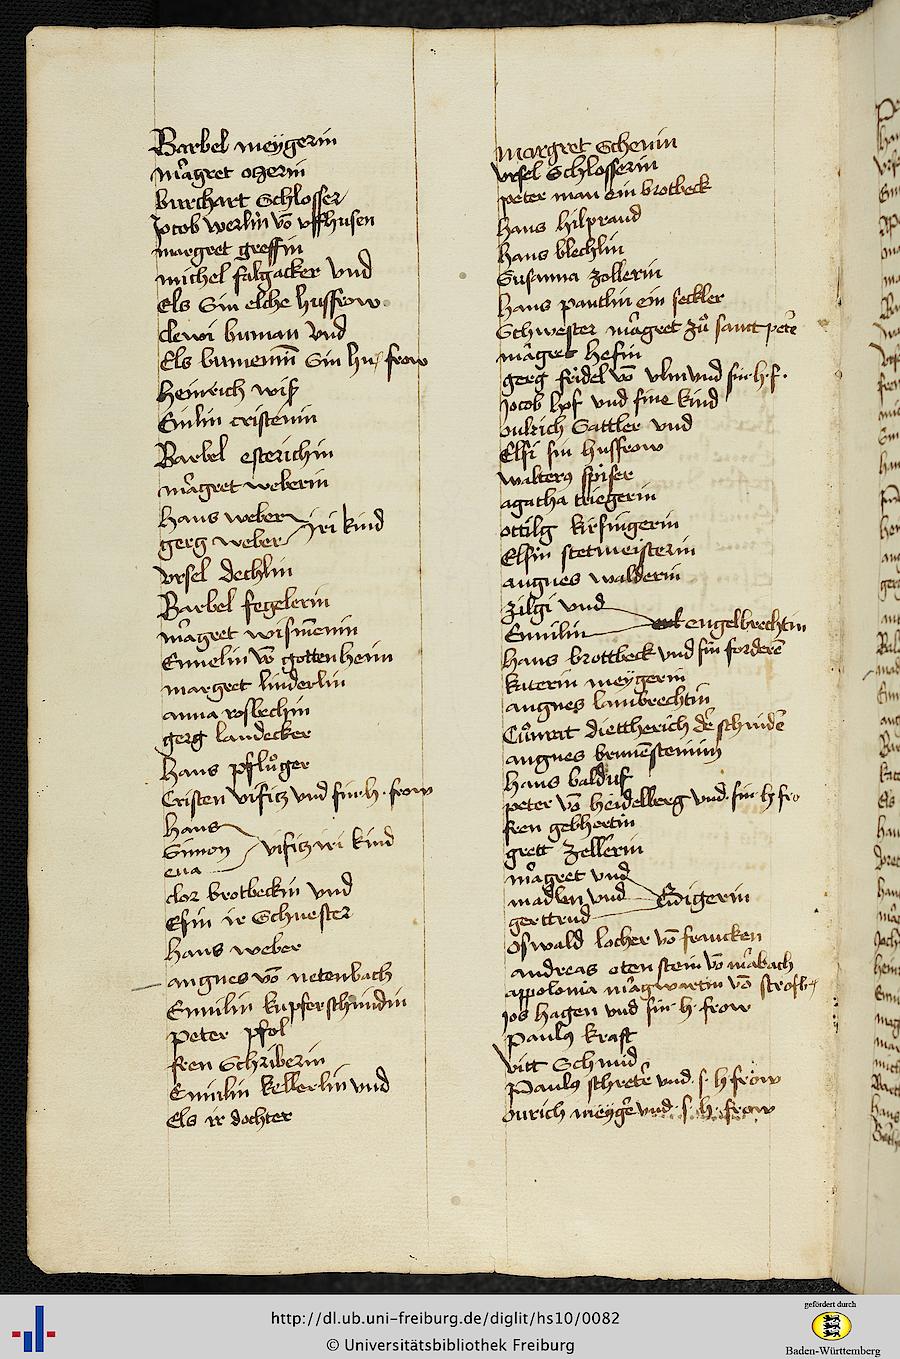 Barbel meÿgerin
mᵃgret oczerin
burchart Schlosser
Jocob werlin võ uffhusen
margret greffin
michel falgacker Vnd
Els Sin elche husfrow
clewi buman Vnd
Els bumenin Sin hus frow
heinrich wiß
Enlin cristenin
Barbel esterichin
mᵃgret weberin
hans weber
gerg weber iri kind
vrsel dechlin
Barbel fegelerin
mᵃgret
Ennelin võ gottenheim
margret linderlin
anna rosbechin
gerg landecker
hans pflůger
Cristen vifitz vnd sin h. frow
hans
Simon vifitz iri kind
eua
clor brotbeckin vnd
Elsin ir Schwester
hans weber
angnes võ netenbach
Ennilin kupferschmidin
Peter pfol
fren Schriberin
Ennlin kellerlin vnd
Els ir dochter
margret Scherin
vrsel Schlosserin
peter man ein brotbeck
hans hilprand
hans blechlin
Susanna zollerin
hans paullin ein seckler
Schwester mᵃgret zů sanct peter
mᵃgret hefin
gerg fridel võ vlm vnd sin h. f.
Jocob vnd sine kind
oulrich Sattler vnd
Elsi sin husfrow
walterus spiser
agatha triegerin
ottilg kirsingerin
Elsin stetmeisterin
angnes walderin
zilgi vnd
Ennilin engelbrechtin
hans brottbeck vnd sin forderen
katerin meÿgerin
angnes lambrechtin
Cůnrat diettherich der schnider
angnes brunnensteinin
hans balduf
peter võ heidelberg vnd sin h fro
fren gebhertin
grett zellerin
mᵃgret vnd
madlen vnd Edigerin
gerttrud
Oswald locher võ francken
andreas otenstein võ mᵃrbach
appolonia mᵃgwartin võ strosbᵍ
Jos hagen vnd sin h. frow
Paulus kraft
Vitt Schmid
Paulus schreter vnd s. h frow
ourich meÿger vnd s. h. frow
http://dl.ub.uni-freiburg.de/diglit/hs10/0082
© Universitätsbibliothek Freiburg
gefördert durch
Baden-Württemberg